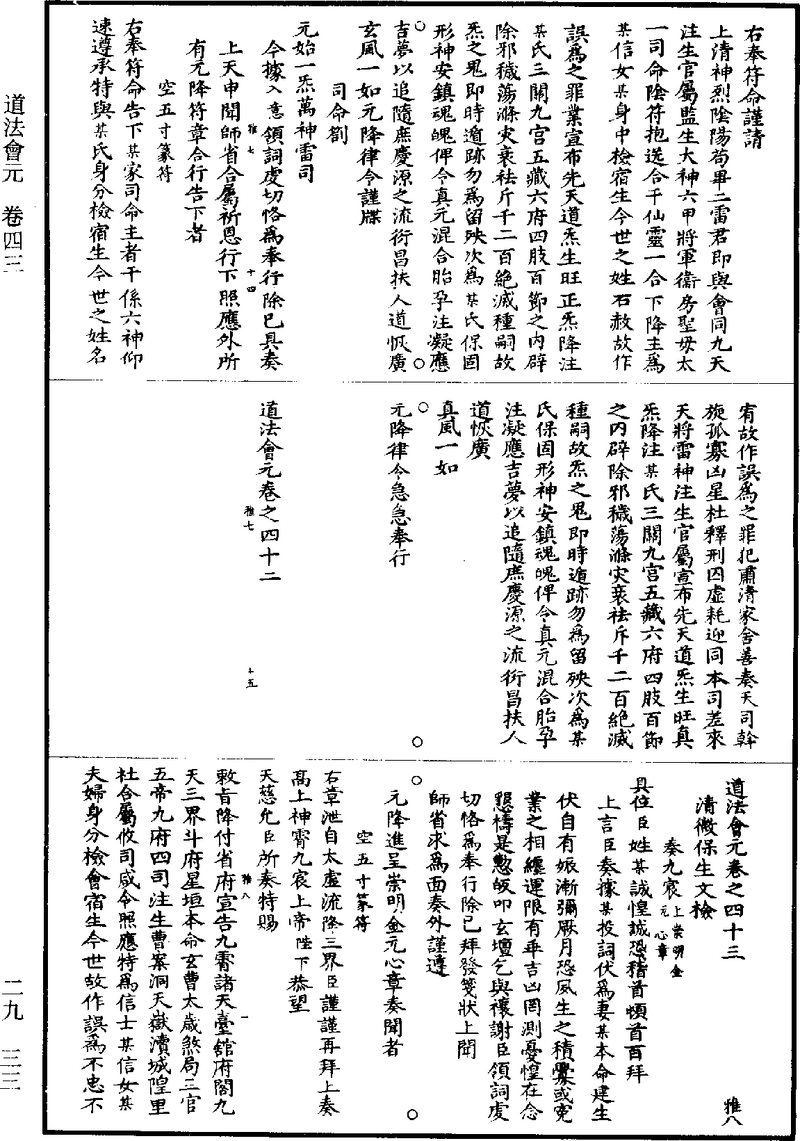 道法會元 卷四三
二九 三三
右奉符命謹請
上清神烈陰陽苟畢二雷君即與會同九天
注生官屬監生大神六甲將軍衛房聖母太
一司命陰符抱送合干仙靈一合下降主爲
某信女某身中檢宿生今世之姓石赦故作
誤爲之罪業宣布先天道炁生旺正炁降注
某氏三關九宮五藏六府四肢百節之内辟
除邪穢蕩滌灾衰袪斥千二百絶滅種嗣故
炁之鬼即時遁跡勿爲留殃次爲某氏保固
形神安鎮魂魄俾令真元混合胎孕注凝應
吉夢以追隨庶慶源之流衍昌扶人道恢廣
玄風一如元降律令謹牒
司命劄
元始一炁萬神雷司
今據入意領詞虔切恪爲奉行除已具奏
雅七 十四
上天申聞師省合屬祈恩行下照應外所
有元降符章合行告下者
空五寸篆符
右奉符命告下某家司命主者干係六神仰
速遵承特與某氏身分檢宿生今世之姓名
宥故作誤爲之罪犯肅清家舍善奏天司斡
旋孤寡凶星杜釋刑囚虛耗迎同本司差來
天將雷神注生官屬宣布先天道炁生旺真
炁降注某氏三關九宮五藏六府四肢百節
之内辟除邪穢蕩滌灾衰袪斥千二百絶滅
種嗣故炁之鬼即時遁跡勿爲留殃次爲某
氏保固形神安鎮魂魄俾令真元混合胎孕
注凝應吉夢以追隨庶慶源之流衍昌扶人
道恢廣
真風一如
元降律令急急奉行
道法會元卷之四十二
雅七 十五
道法會元卷之四十三 雅八
清微保生文檢
奏九宸 上崇明金元心章
具位臣姓某誠惶誠恐稽首頓首百拜
上言臣奏據某投詞伏爲妻某本命建生
伏自有娠漸彌厥月恐夙生之積釁或寃
業之相纏運限有乖吉凶罔測憂惶在念
懇禱是懃皈叩玄壇乞與禳謝臣領詞虔
切恪爲奉行除已拜發箋狀上聞
師省求爲面奏外謹遵
元降進呈崇明金元心章奏聞者
空五寸篆符
右章泄自太虛流降三界臣謹謹再拜上奏
髙上神霄九宸上帝陛下恭望
天慈允臣所奏特賜
雅八 一
敕旨降付省府宣告九霄諸天臺舘府閣九
天三界斗府星垣本命玄曹太歲煞局三官
五帝九府四司注生曹案洞天嶽瀆城隍里
社合屬攸司咸令照應特爲信士某信女某
夫婦身分檢會宿生今世故作誤爲不忠不